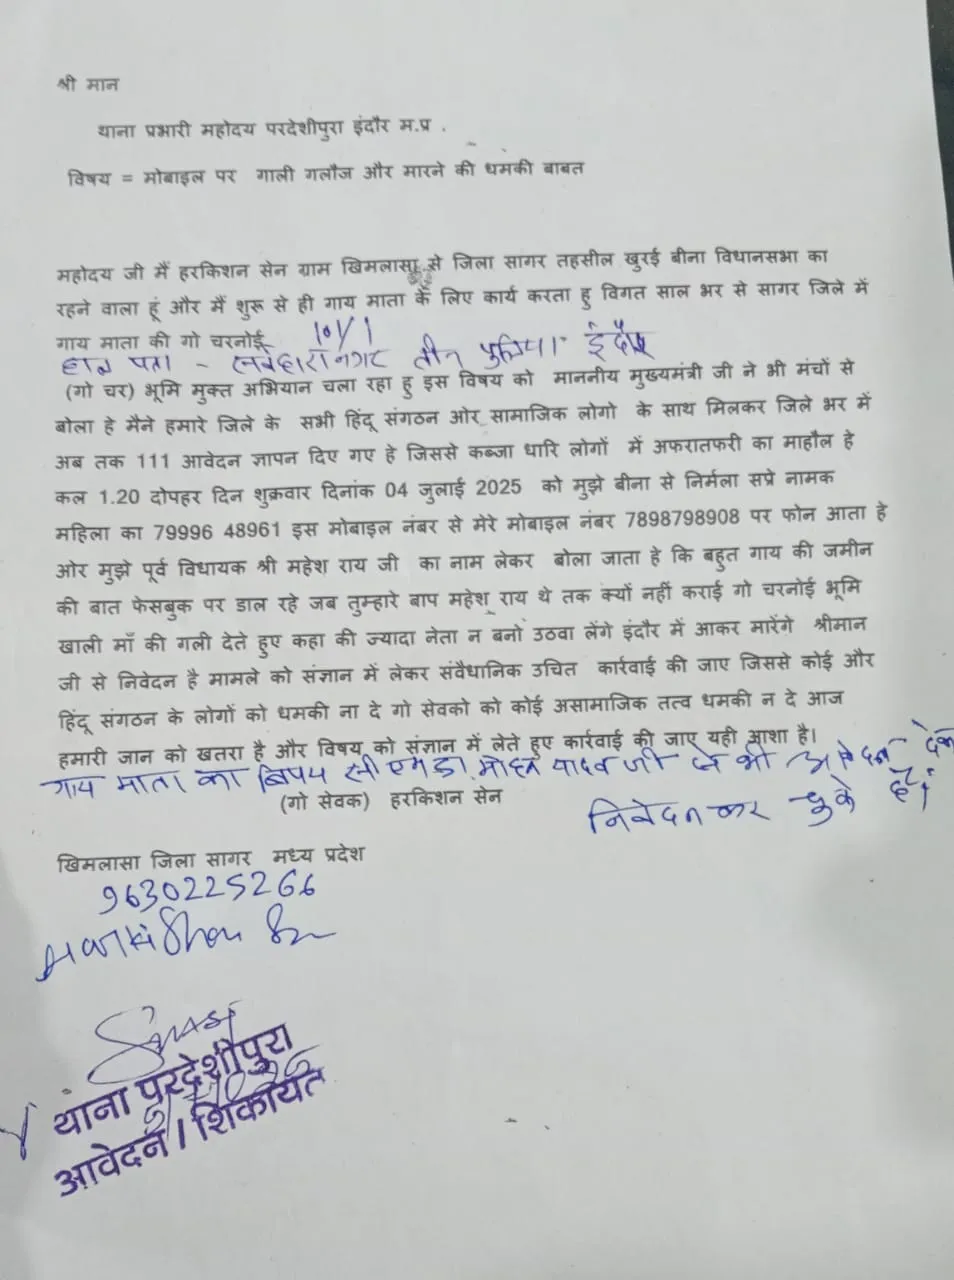 श्री मान
थाना प्रभारी महोदय परदेशीपुरा इंदौर म.प्र .
विषय = मोबाइल पर गाली गलौज और मारने की धमकी बाबत
महोदय जी मैं हरकिशन सेन ग्राम खिमलासा से जिला सागर तहसील खुरई बीना विधानसभा का
रहने वाला हूं और मैं शुरू से ही गाय माता के लिए कार्य करता हु विगत साल भर से सागर जिले में
गाय माता की गो चरनोई
10/1
हाल पता - सर्वहारा नगर तीन पुलिया इंदौर
(गो चर) भूमि मुक्त अभियान चला रहा हु इस विषय को माननीय मुख्यमंत्री जी ने भी मंचों से
बोला हे मैने हमारे जिले के सभी हिंदू संगठन ओर सामाजिक लोगो के साथ मिलकर जिले भर में
अब तक 111 आवेदन ज्ञापन दिए गए हे जिससे कब्जा धारि लोगों में अफरातफरी का माहौल हे
कल 1.20 दोपहर दिन शुक्रवार दिनांक 04 जुलाई 2025 को मुझे बीना से निर्मला सप्रे नामक
महिला का 79996 48961 इस मोबाइल नंबर से मेरे मोबाइल नंबर 7898798908 पर फोन आता हे
ओर मुझे पूर्व विधायक श्री महेश राय जी का नाम लेकर बोला जाता हे कि बहुत गाय की जमीन
की बात फेसबुक पर डाल रहे जब तुम्हारे बाप महेश राय थे तक क्यों नहीं कराई गो चरनोई भूमि
खाली माँ की गली देते हुए कहा की ज्यादा नेता न बनो उठवा लेंगे इंदौर में आकर मारेंगे श्रीमान
जी से निवेदन है मामले को संज्ञान में लेकर संवैधानिक उचित कार्रवाई की जाए जिससे कोई और
हिंदू संगठन के लोगों को धमकी ना दे गो सेवको को कोई असामाजिक तत्व धमकी न दे आज
हमारी जान को खतरा है और विषय को संज्ञान में लेते हुए कार्रवाई की जाए यही आशा है।
गाय माता का विषय सी एम डा. मोहन यादव जी को भी आवेदन देकर
निवेदन कर चुके हैं।
(गो सेवक) हरकिशन सेन
खिमलासा जिला सागर मध्य प्रदेश
9630225266
थाना परदेशीपुरा
आवेदन / शिकायत